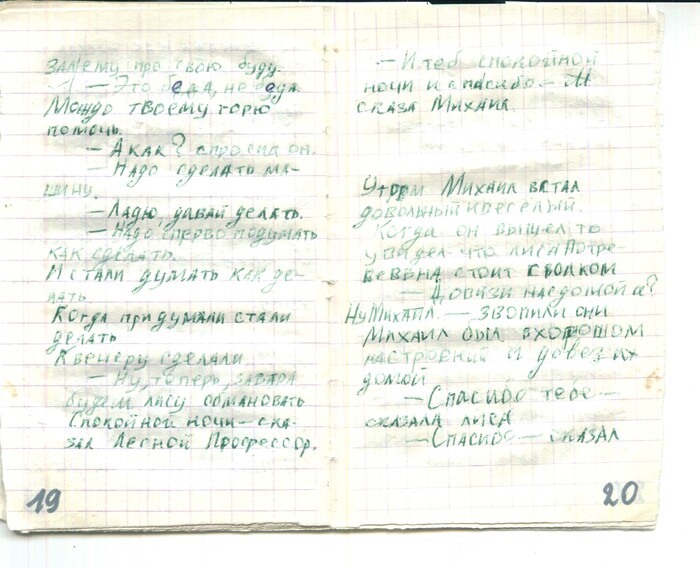 зал ему про свою беду.
— Это беда, не беда
Можно твоему горю
помочь.
— А как? спросил он.
— Надо сделать ма-
шину.
— Ладю, давай делать.
— Надо сперво подумать
как сделать.
И стали думать как де-
лать.
Когда придумали стали
делать
К вечеру сделали
— Ну, теперь, завтра
будем лису обмановать
Спокойной ночи — ска-
зал Лесной Профессор.
19
— И теб спокойной
ночи и спасибо —
сказа Михаил.
Утром Михаил встал
довольный и весёлый.
Когда он вышел то
увидел что лиса Потре-
вевна стоит с волком
— Довизи нас домой а?
Ну Михаил. — звопили они
Михаил был в хорошом
настроении и довез их
домой
— Спасибо тебе —
сказала лиса
— Спасибо — сказал
20